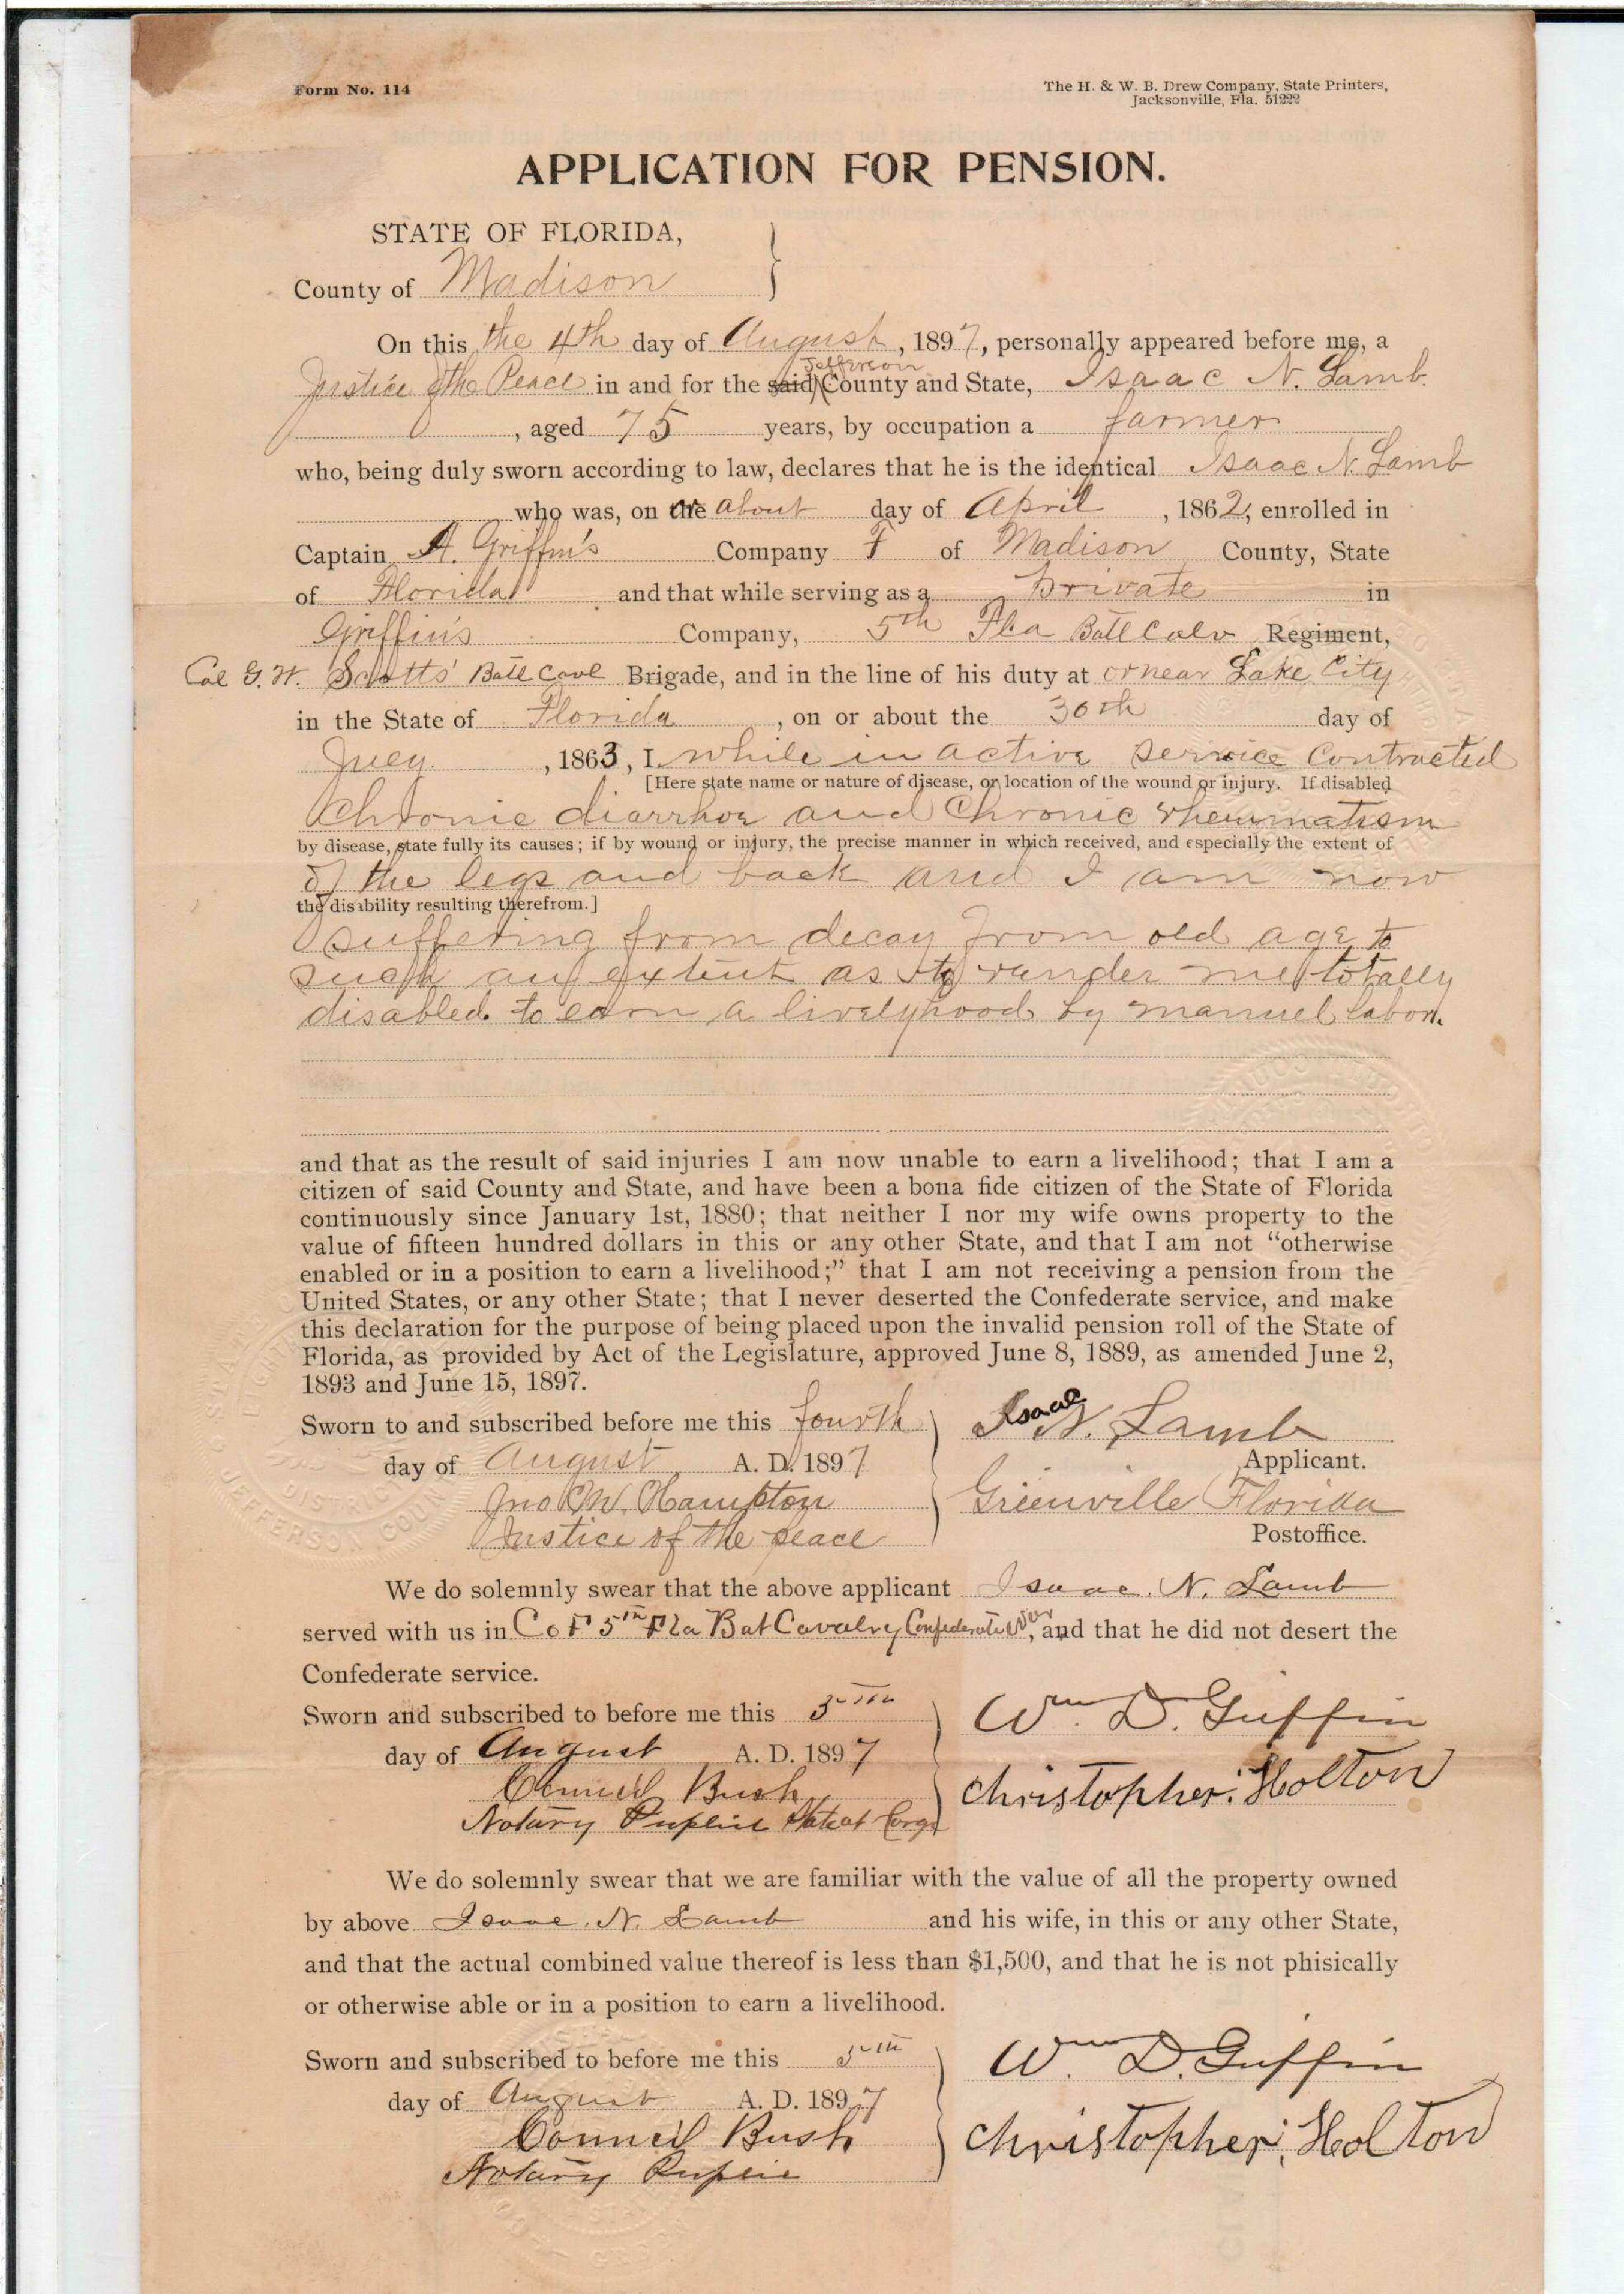 Form No. 114
The H. & W. B. Drew Company, State Printers,
Jacksonville, Fla. 51222
APPLICATION FOR PENSION.
STATE OF FLORIDA,
County of Madison
On this the 4th day of August, 1897, personally appeared before me, a
Jefferson
Justice of the Peace in and for the said County and State, Isaac N. Lamb
, aged 75 years, by occupation a farmer
who, being duly sworn according to law, declares that he is the identical Isaac N. Lamb
who was, on the or about day of April, 1862, enrolled in
Captain A. Griffin's Company F of Madison County, State
of Florida and that while serving as a Private in
Griffin's Company, 5th Fla Batt Calv Regiment,
Col G. W. Scotts' Batt Cavl Brigade, and in the line of his duty at or near Lake City
in the State of Florida, on or about the 30th day of
July, 1863, I while in active service contracted
[Here state name or nature of disease, or location of the wound or injury. If disabled
Chronic diarrhoe and Chronic rheumatism
by disease, state fully its causes; if by wound or injury, the precise manner in which received, and especially the extent of
of the legs and back and I am now
the disability resulting therefrom.]
suffering from decay from old age to
such an extent as to rander me totally
disabled to earn a livelyhood by manuel labor.
and that as the result of said injuries I am now unable to earn a livelihood; that I am a
citizen of said County and State, and have been a bona fide citizen of the State of Florida
continuously since January 1st, 1880; that neither I nor my wife owns property to the
value of fifteen hundred dollars in this or any other State, and that I am not "otherwise
enabled or in a position to earn a livelihood;" that I am not receiving a pension from the
United States, or any other State; that I never deserted the Confederate service, and make
this declaration for the purpose of being placed upon the invalid pension roll of the State of
Florida, as provided by Act of the Legislature, approved June 8, 1889, as amended June 2,
1893 and June 15, 1897.
Sworn to and subscribed before me this fourth
day of August A. D. 1897
Jno W. Hampton
Justice of the peace
Isaac N. Lamb
Applicant.
Greenville Florida
Postoffice.
We do solemnly swear that the above applicant Isaac. N. Lamb
served with us in Co F 5th Fla Bat Cavalry Confederate War, and that he did not desert the
Confederate service.
Sworn and subscribed to before me this 5th
day of August A. D. 1897
Council Bush
Notary Puplic
Wm. D. Griffin
Christopher Holton
We do solemnly swear that we are familiar with the value of all the property owned
by above Isaac. N. Lamb and his wife, in this or any other State,
and that the actual combined value thereof is less than $1,500, and that he is not phisically
or otherwise able or in a position to earn a livelihood.
Sworn and subscribed to before me this 5th
day of August A. D. 1897
Council Bush
Notary Puplic
Wm D. Griffin
Christopher Holton
JEFFERSON COUN
DISTRIC